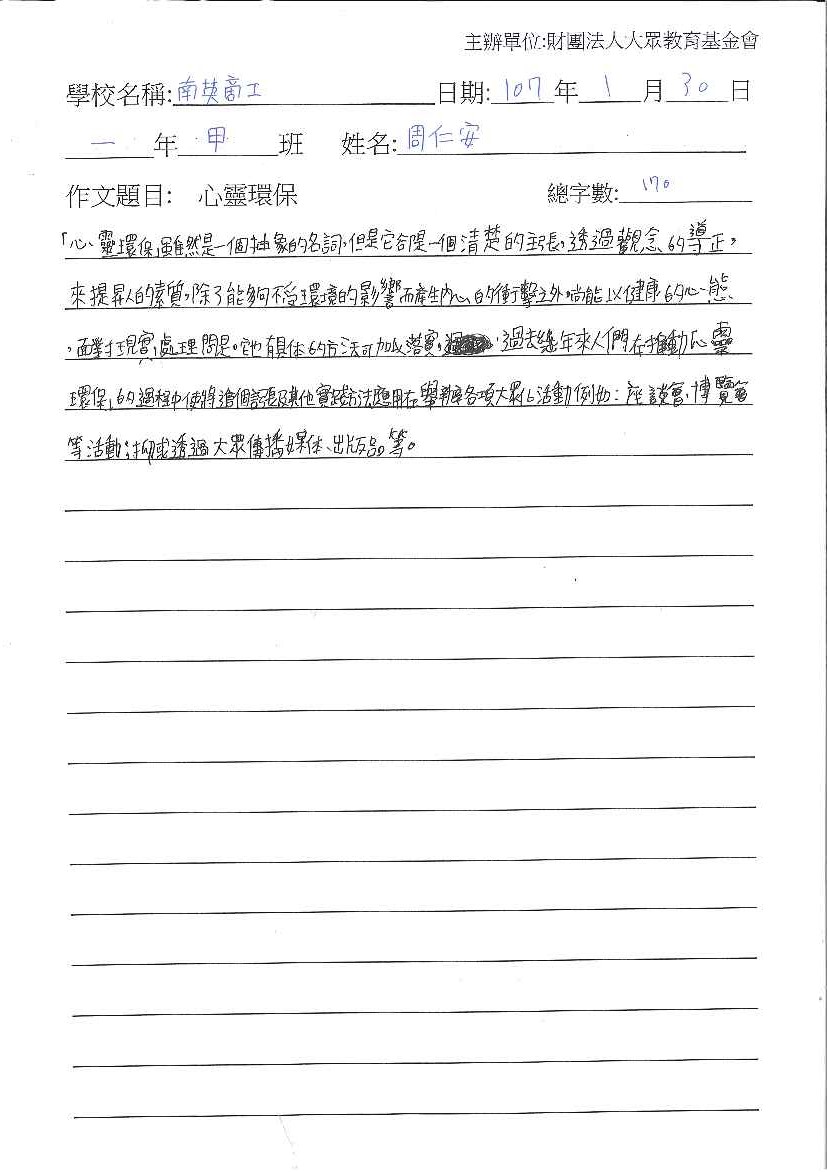 主辦單位:財團法人大眾教育基金會
學校名稱:南英商工 日期:107年1月30日
一年甲班 姓名:周仁安
作文題目: 心靈環保 總字數:170
「心靈環保」雖然是一個抽象的名詞,但是它卻是一個清楚的主張,透過觀念的導正,
來提昇人的素質,除了能夠不受環境的影響而產生內心的衝擊之外,尚能以健康的心態
,面對現實,處理問是。它也有具体的方法可加以落實,過去幾年來人們在推動心靈
環保」的過程中使將這個主張及其他實踐方法應用在舉辦各項大眾化活動例如:座談會、博覽會
等活動;抑或透過大眾傳播媒体、出版品等。